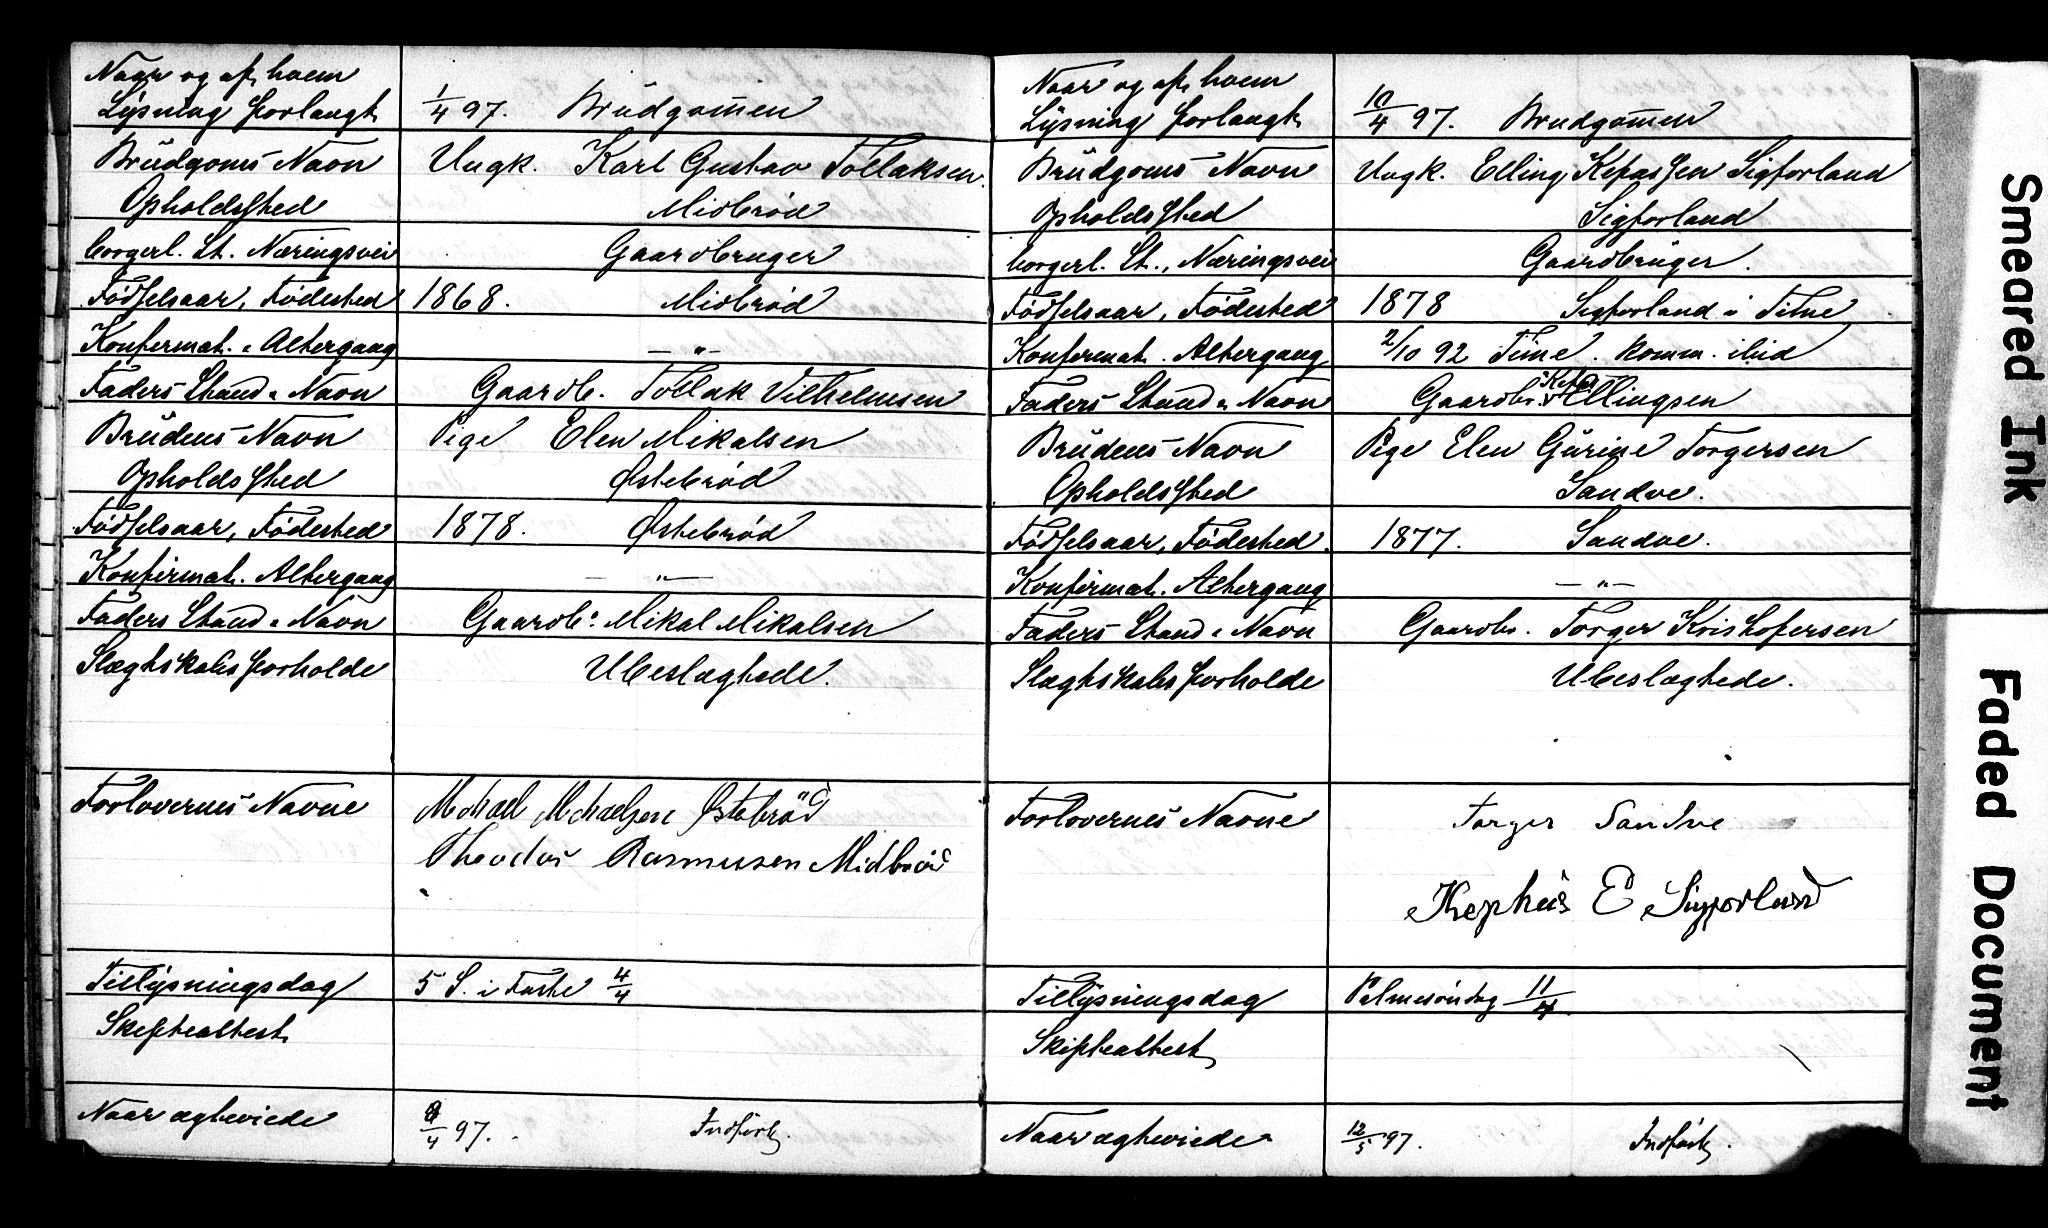 Naar og af hvem
Lysning forlangt 1/4 97. Brudgommen
Brudgoms Navn Ungk. Karl Gustav Tollaksen
Opholdssted Midbrød
borgerl. St. Næringsvei Gaardbruger
Fødselsaar, Fødested 1868. Midbrød
Konfirmat. Altergang — " —
Faders Stand & Navn Gaardb. Tollak Vilhelmsen
Brudens Navn Pige Elen Mikalsen
Opholdssted Østebrød
Fødselsaar, Fødested 1878. Østebrød
Konfirmat. Altergang — " —
Faders Stand & Navn Gaardb. Mikal Mikalsen
Slægtskabsforholde Ubeslægtede.
Forlovernes Navne Michael Michaelsen Østebrød
Theodor Rasmussen Midbrød
Tillysningsdag 5 S. i Faste 4/4
Skifteattest
Naar ægteviede /4 97. Indført.
Naar og af hvem
Lysning forlangt 10/4 97. Brudgommen
Brudgoms Navn Ungk. Elling Kefassen Sigforland
Opholdssted Sigforland
borgerl. St., Næringsvei Gaardbruger.
Fødselsaar, Fødested 1878 Sigforland i Time
Konfirmat. Altergang 2/10 92 Time. komm. ibid
Faders Stand & Navn Gaardbr. Kefas Ellingsen
Brudens Navn Pige Elen Gurine Torgersen
Opholdssted Sandve.
Fødselsaar, Fødested. 1877. Sandve.
Konfirmat. Altergang — " —
Faders Stand & Navn Gaardbr. Torger Kristofersen
Slægtskabsforholde Ubeslægtede.
Forlovernes Navne Torger Sandve
Kephas E Sigforland
Tillysningsdag Palmesöndag 11/4.
Skifteattest
Naar ægteviede 12/5 97. Indført.
Smeared Ink
Faded Document